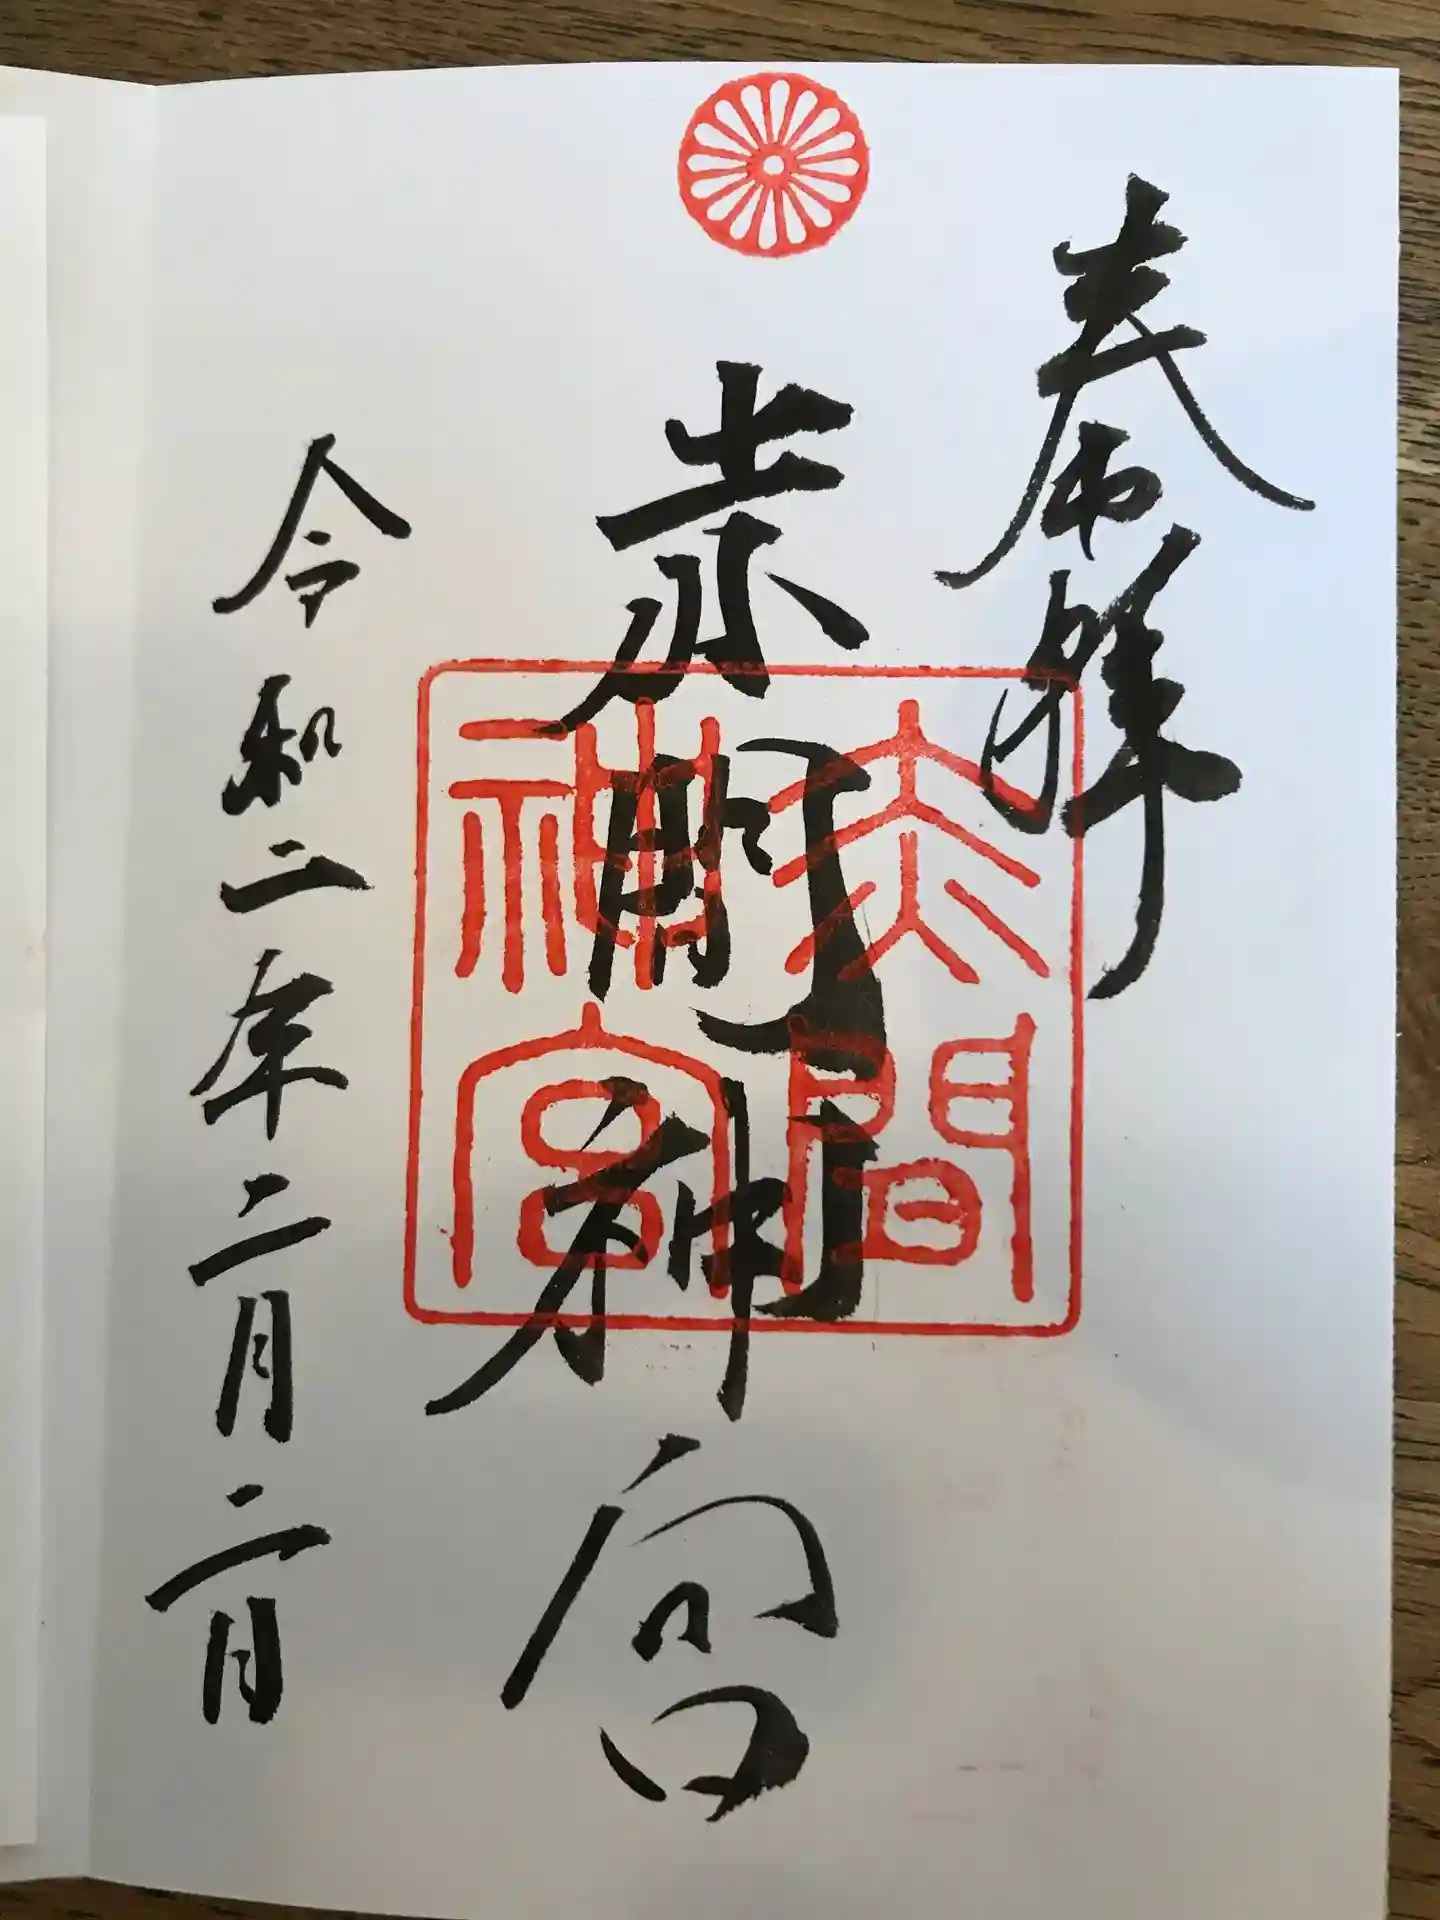 奉拜
赤間神宮
赤間神宮
令和二年二月二日